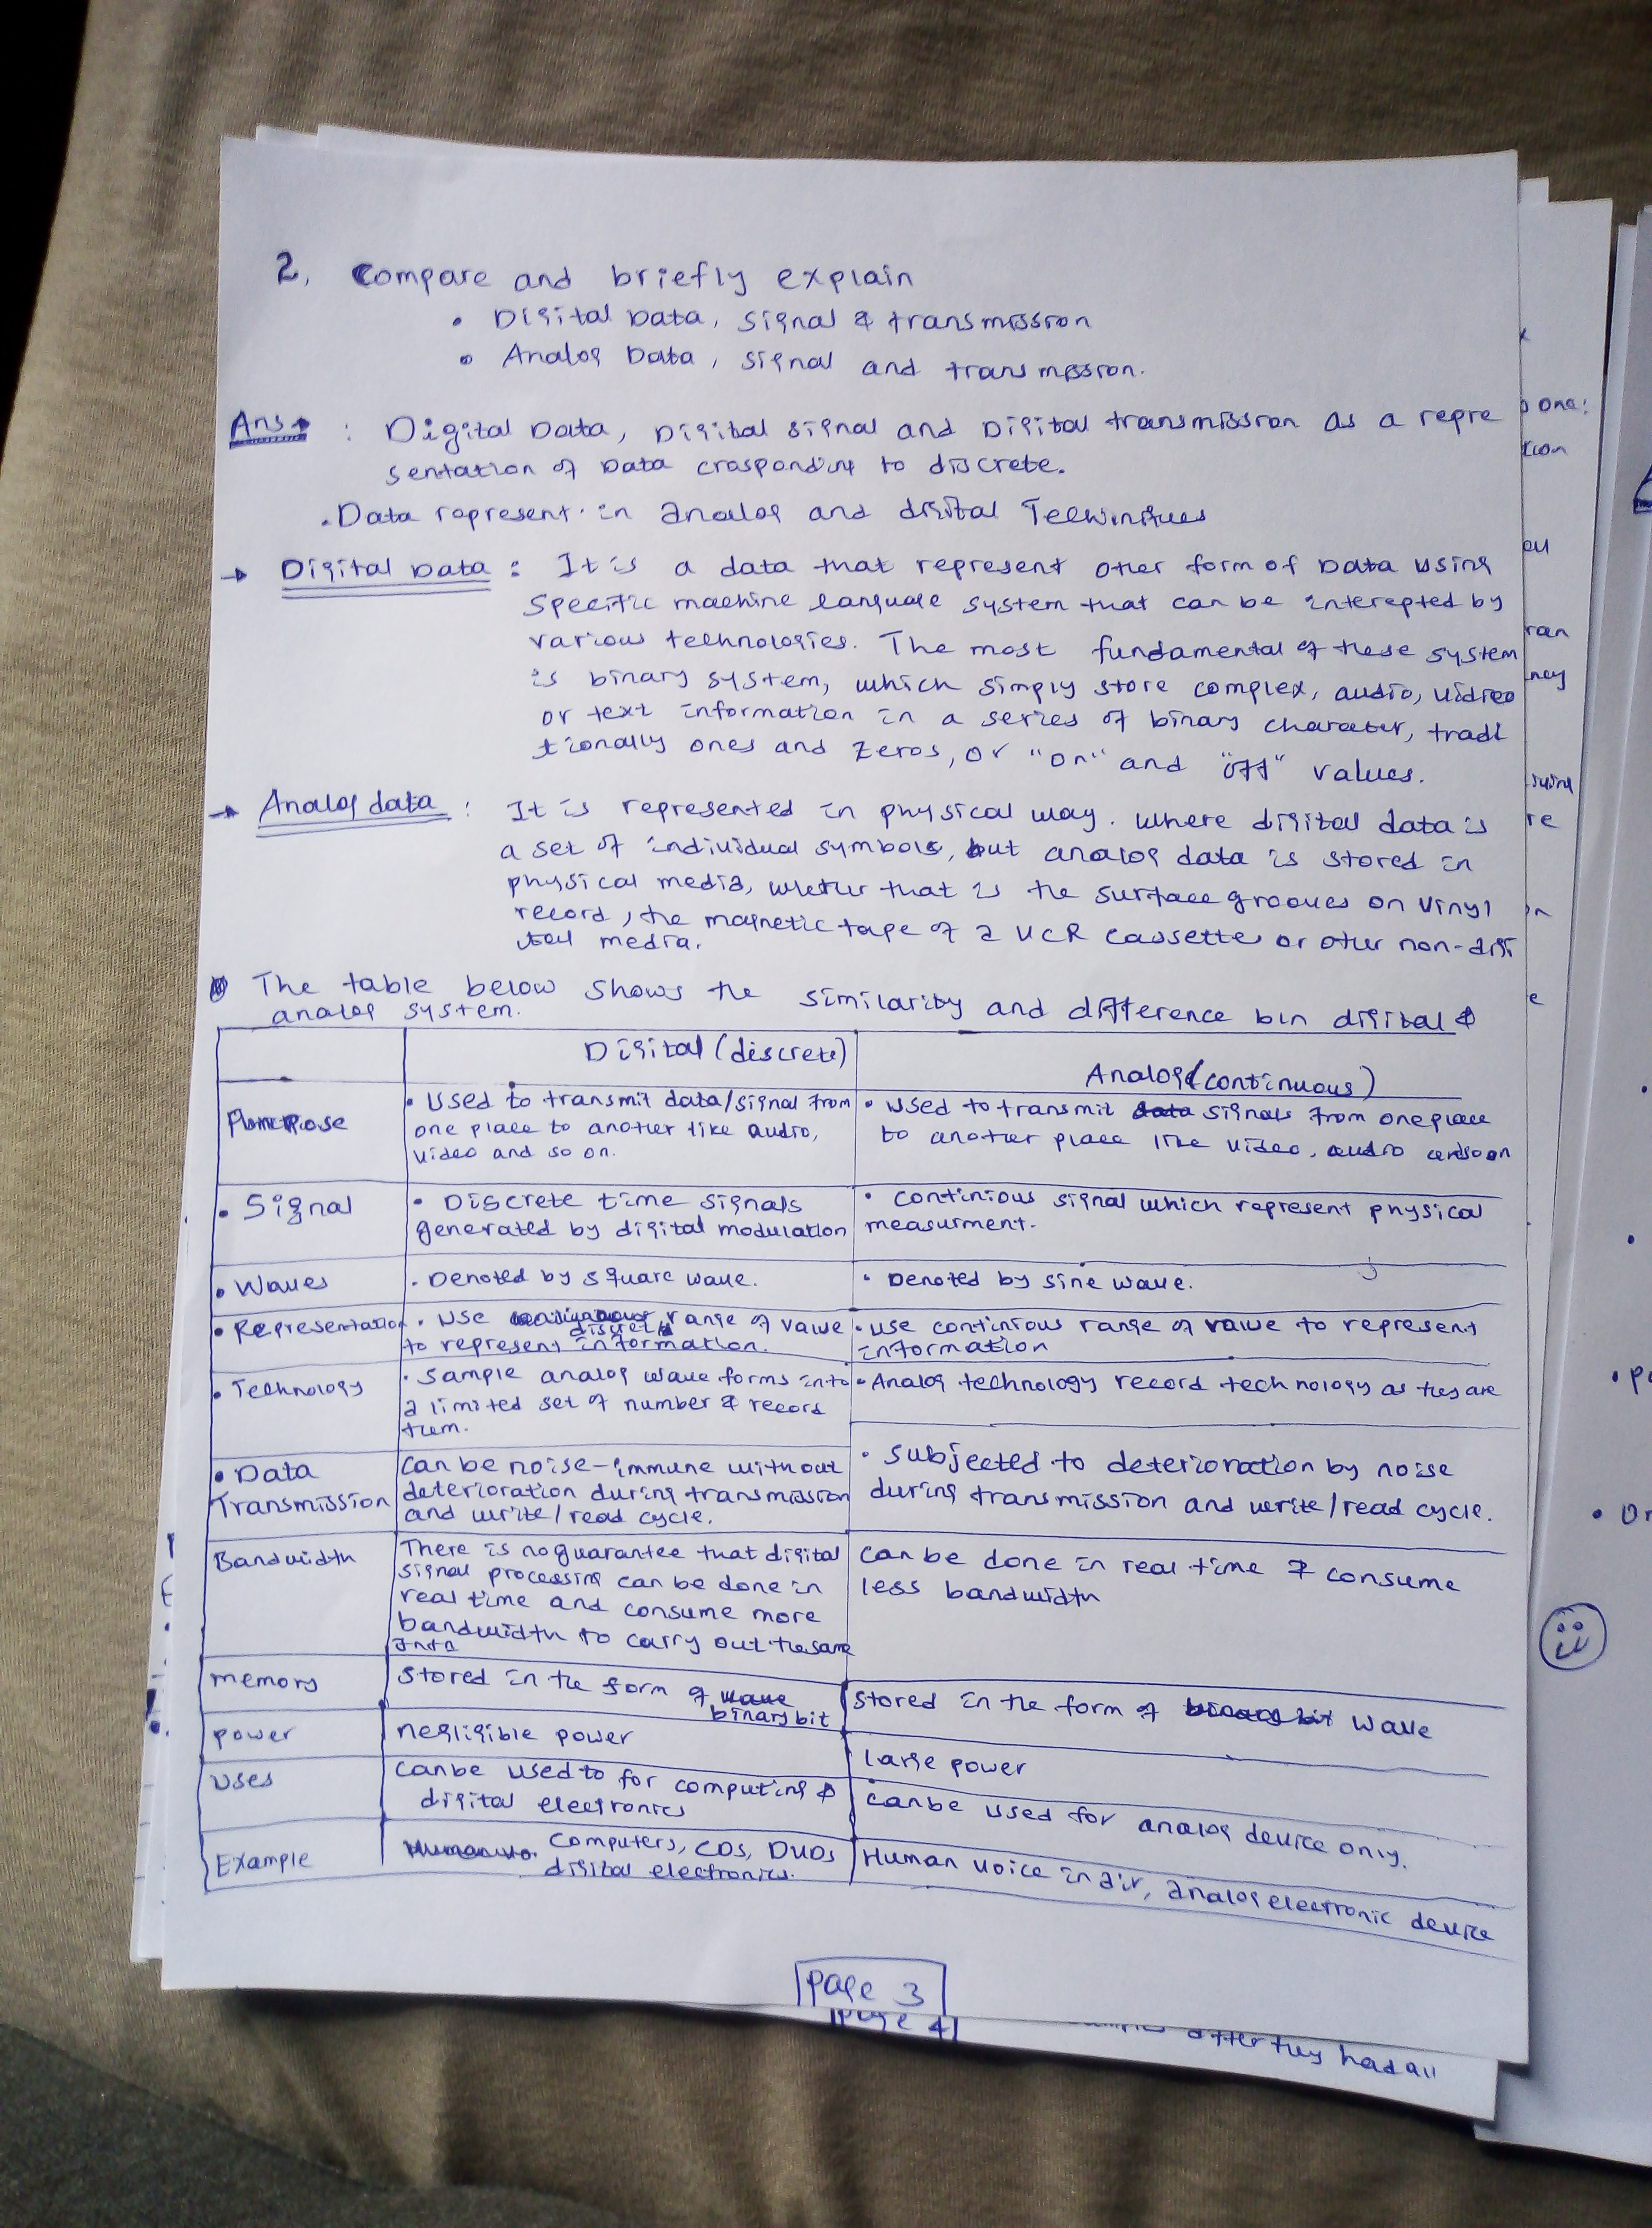 2. Compare and briefly explain
• Digital Data, signal & transmission
• Analog Data, signal and transmission.
Ans : Digital Data, Digital signal and Digital transmission as a repre
sentation of Data crasponding to discrete.
. Data represent in analog and digital
→ Digital Data : It is a data that represent other form of Data using
Specific machine language system that can be interepted by
various technologies. The most fundamental of these system
is binary system, which simply store complex, audio, vidreo
or text information in a series of binary charater, tradi
tionally ones and zeros, or "on" and "off" values.
→ Analog data : It is represented in physical way. Where digital data is
a set of individual symbols, but analog data is stored in
physical media, whether that is the surface grooves on vinyl
record, the magnetic tape of a VCR cassette or other non-digi
tal media.
The table below shows the similarity and difference btn digital &
analog system.
Digital (discrete)
Analog (continuous)
Purpose
• Used to transmit data/signal from
one place to another like audio,
video and so on.
• Used to transmit data signals from one place
to another place like video, audio and so on
• Signal
• Discrete time signals
generated by digital modulation
• continious signal which represent physical
measurment.
• Waves
. Denoted by square wave.
• Denoted by sine wave.
• Representation
. Use discrete range of value
to represent information.
• use continious range of value to represent
information
• Technology
. Sample analog wave forms into
a limited set of number & record
them.
• Analog technology record technology as they are
• Data
Transmission
can be noise-immune without
deterioration during transmission
and write/read cycle.
• subjected to deterioration by noise
during transmission and write/read cycle.
Bandwidth
There is no guarantee that digital
signal processing can be done in
real time and consume more
bandwidth to carry out the same
info
can be done in real time & consume
less bandwidth
memory
stored in the form of wave
binary bit
stored in the form of binary bit wave
power
negligible power
large power
Uses
can be used to for computing &
digital electronics
can be used for analog device only.
Example
Computers, CDs, DVDs
digital electronics.
Human voice in air, analog electronic device
page 3
page 4
after they had all